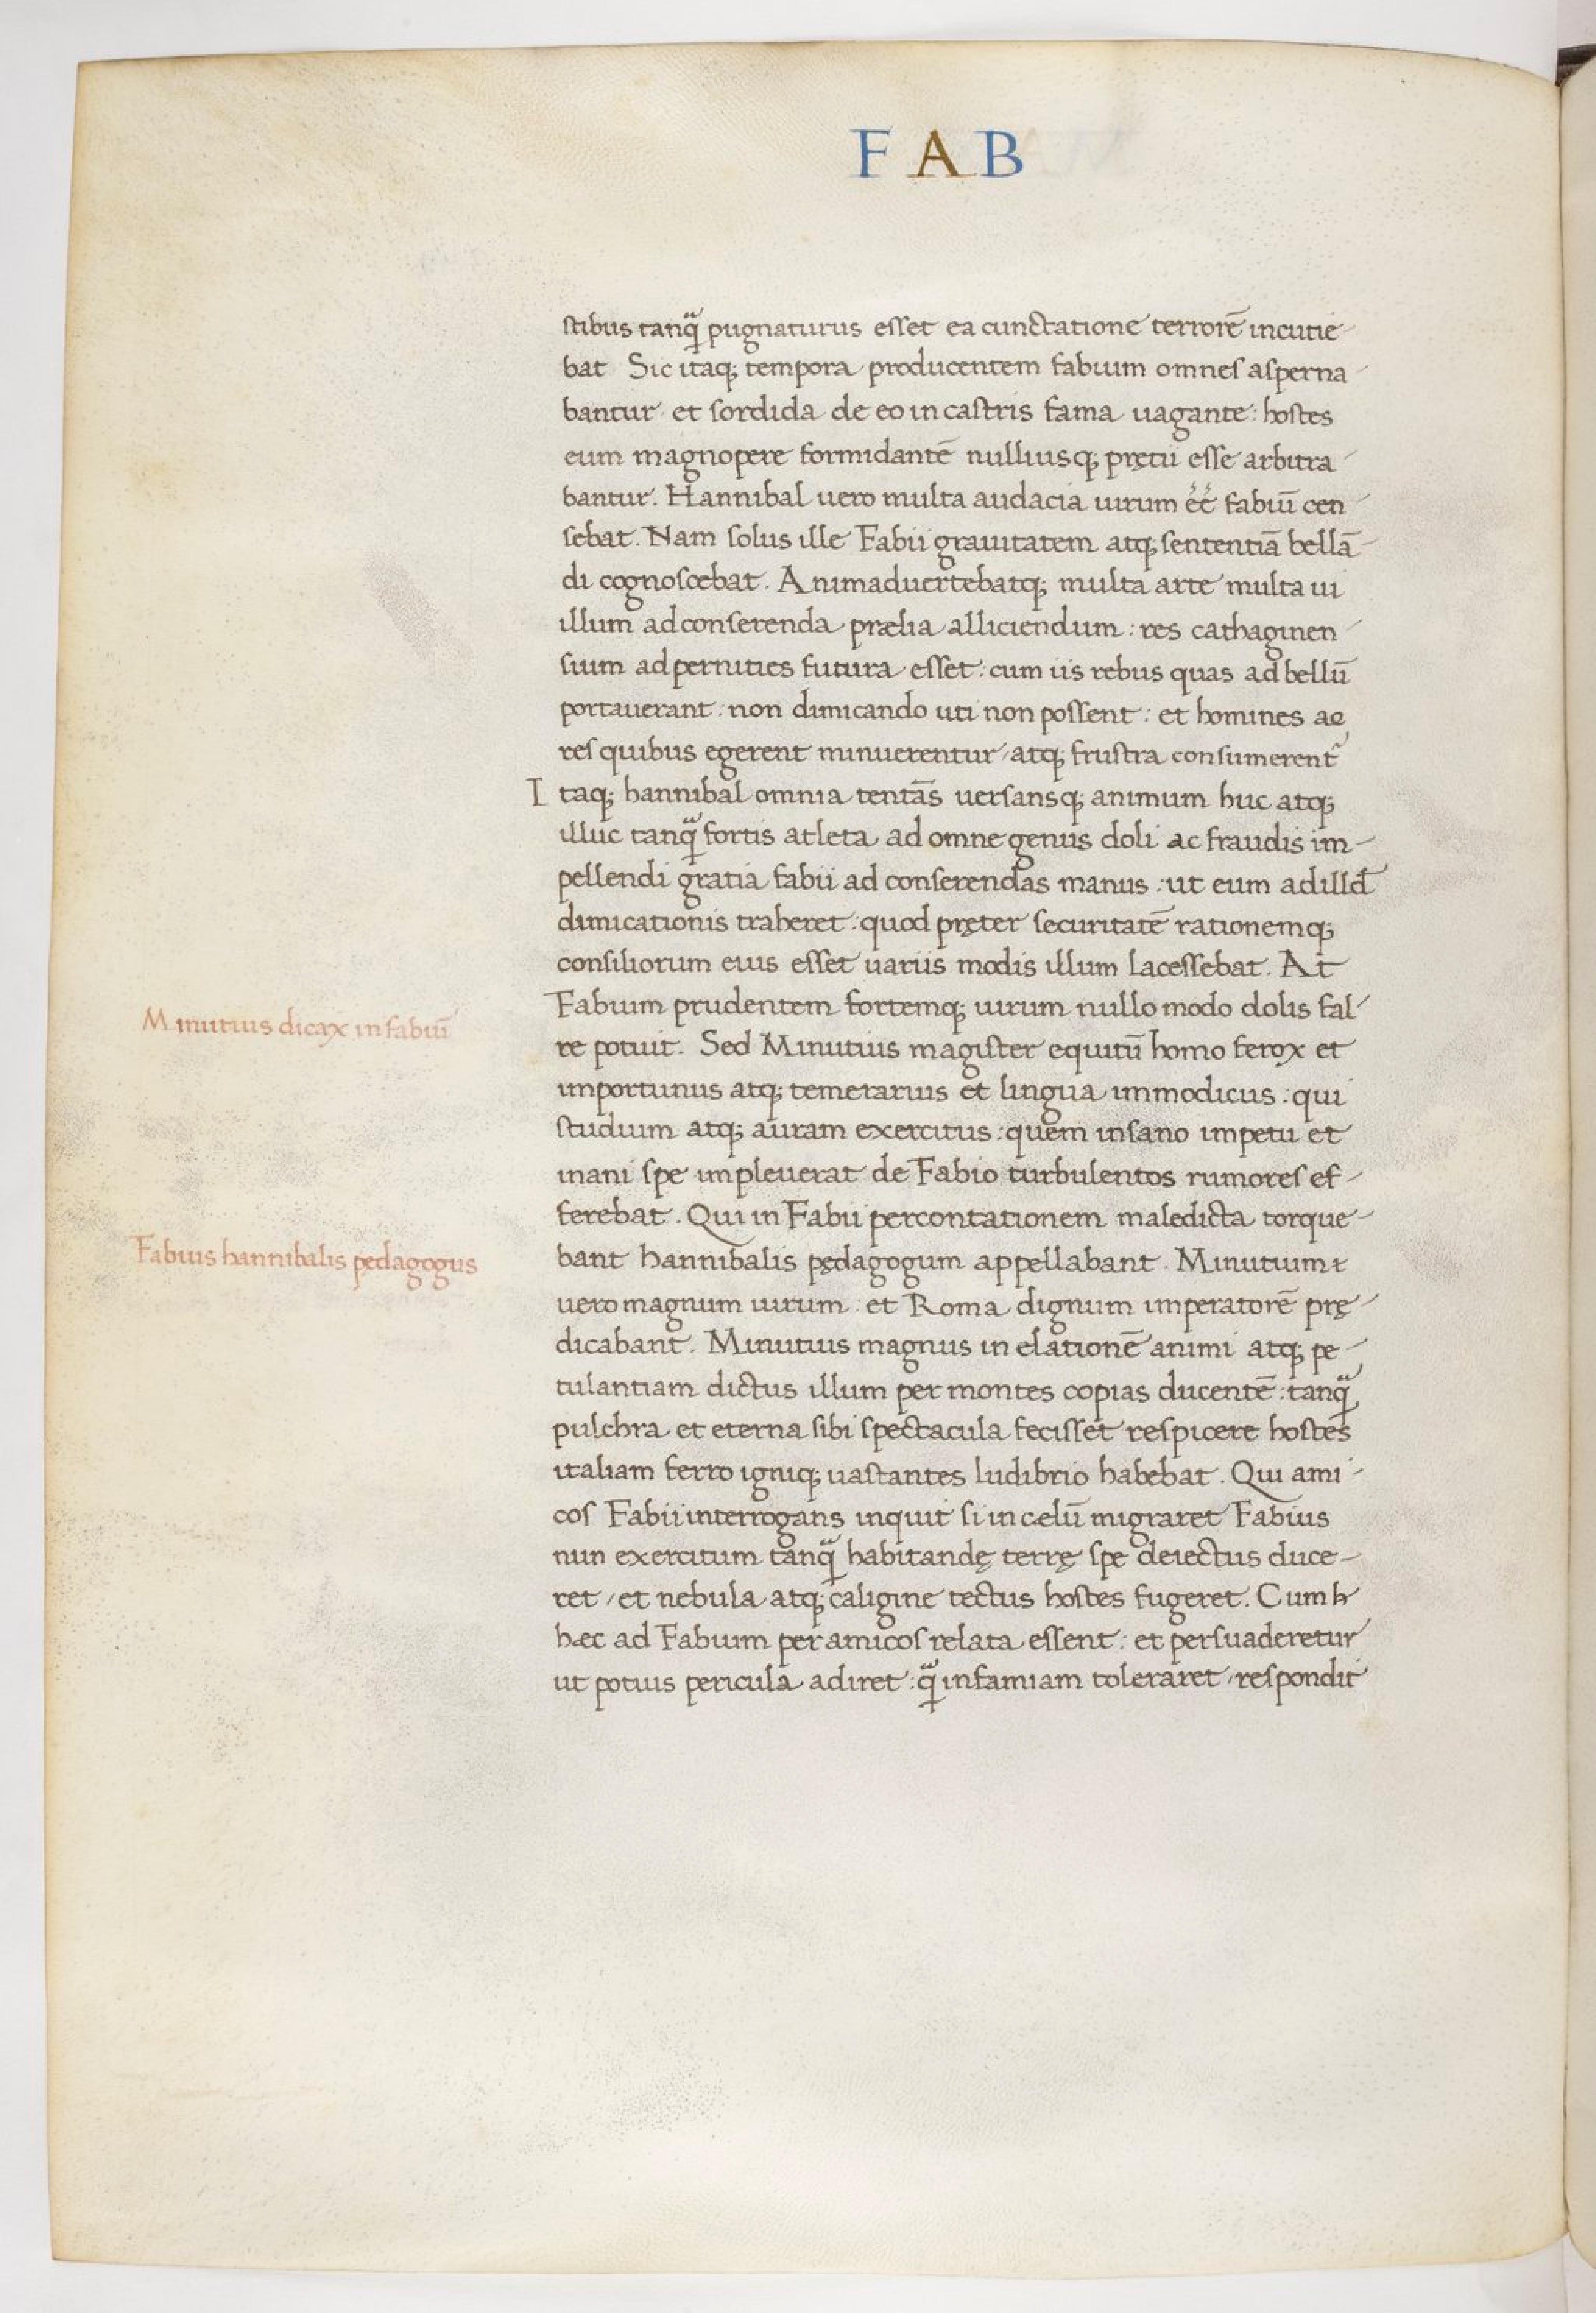 F A B
stibus tanqᷓ pugnaturus esset ea cunctatione terrorē incutie-
bat Sic itaq; tempora producentem fabium omnes asperna-
bantur et sordida de eo in castris fama uagante: hostes
eum magnopere formidantē nulliusq; pretii esse arbitra-
bantur. Hannibal uero multa audacia uirum ēē fabiū cen-
sebat. Nam solus ille Fabii grauitatem atq; sententiā bellā-
di cognoscebat. Animaduertebatq; multa arte multa ui
illum ad conserenda prælia alliciendum: res cathaginen-
sium ad pernities futura esset: cum iis rebus quas ad bellū
portauerant: non dimicando uti non possent: et homines ac
res quibus egerent minuerentur/atq; frustra consumerent᷑
Itaq; hannibal omnia tentās uersansq; animum huc atq;
illuc tanqᷓ fortis atleta ad omne genus doli ac fraudis im-
pellendi gratia fabii ad conserendas manus: ut eum ad illd̄
dimicationis traheret: quod pręter securitatē rationemq;
consiliorum eius esset uariis modis illum lacessebat. At
Minutius dicax in fabiū
Fabium prudentem fortemq; uirum nullo modo dolis fal-
re potuit. Sed Minutius magister equitū homo ferox et
importunus atq; temerarius et lingua immodicus: qui
studium atq; auram exercitus: quem insano impetu et
inani spe impleuerat de Fabio turbulentos rumores ef-
ferebat. Qui in Fabii percontationem maledicta torque-
Fabius hannibalis pędagogus
bant hannibalis pędagogum appellabant. Minutium
uero magnum uirum: et Roma dignum imperatorē prę-
dicabant. Minutius magnus in elationē animi atq; pe-
tulantiam dictus illum per montes copias ducentē: tanqᷓ
pulchra et eterna sibi spectacula fecisset respicere hostes
italiam ferro igniq; uastantes ludibrio habebat. Qui ami-
cos Fabii interrogans inquit si in cælū migraret Fabius
nun exercitum tanqᷓ habitandę terrę spe deiectus duce-
ret/et nebula atq; caligine tectus hostes fugeret. Cum h
hæc ad Fabium per amicos relata essent: et persuaderetur
ut potius pericula adiret: qᷓ infamiam toleraret/respondit